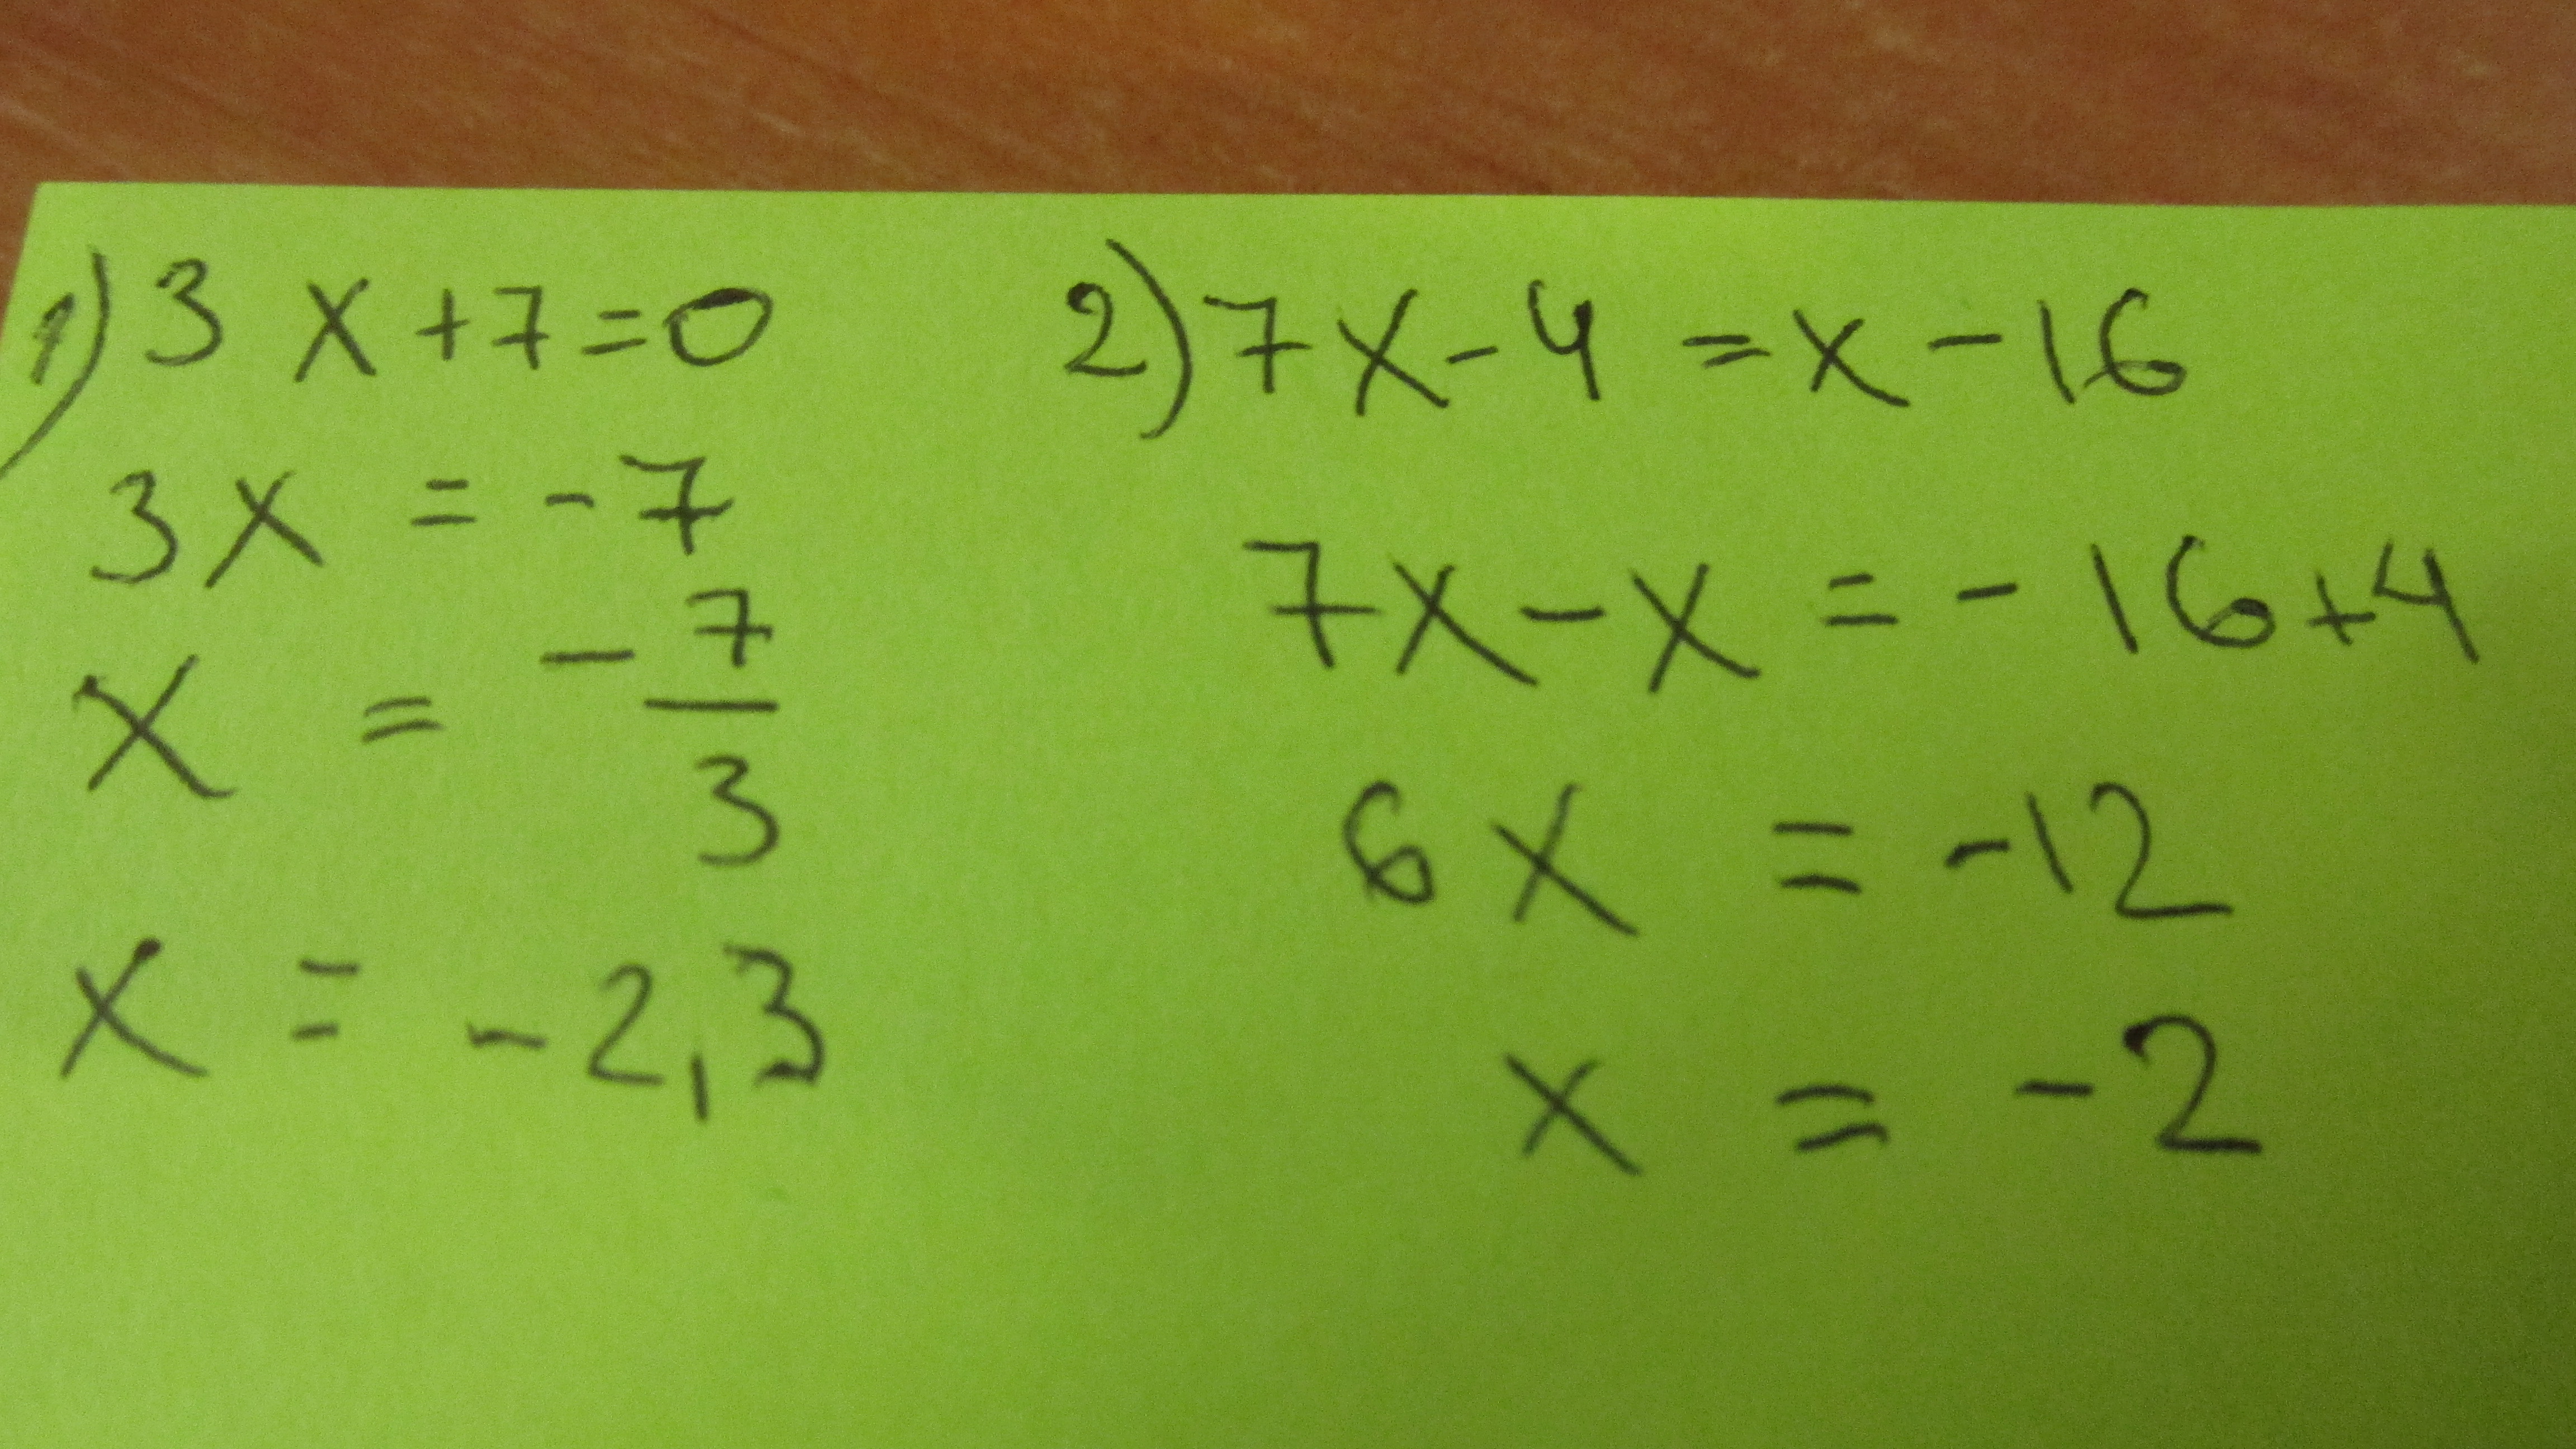 1) 3x+7=0
3x = -7
x = -7/3
x = -2,3
2) 7x-4=x-16
7x-x=-16+4
6x = -12
x = -2